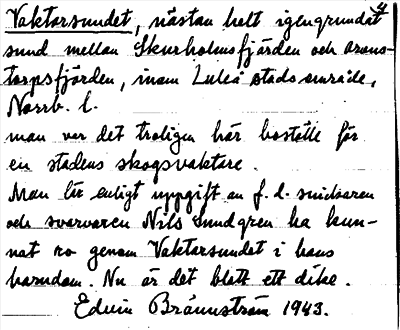 Vaktarsundet, nästan helt igengrundat
sund mellan Skurholmsfjärden och Arons-
torpsfjärden, inom Luleå stadsområde,
Norrb. l.
man var det troligen här boställe för
en stadens skogsvaktare.
Man lär enligt uppgift av f. d. snickaren
och svarvaren Nils Lundgren ha kun-
nat ro genom Vaktarsundet i hans
barndom. Nu är det blott ett dike.
Edvin Brännström 1943.